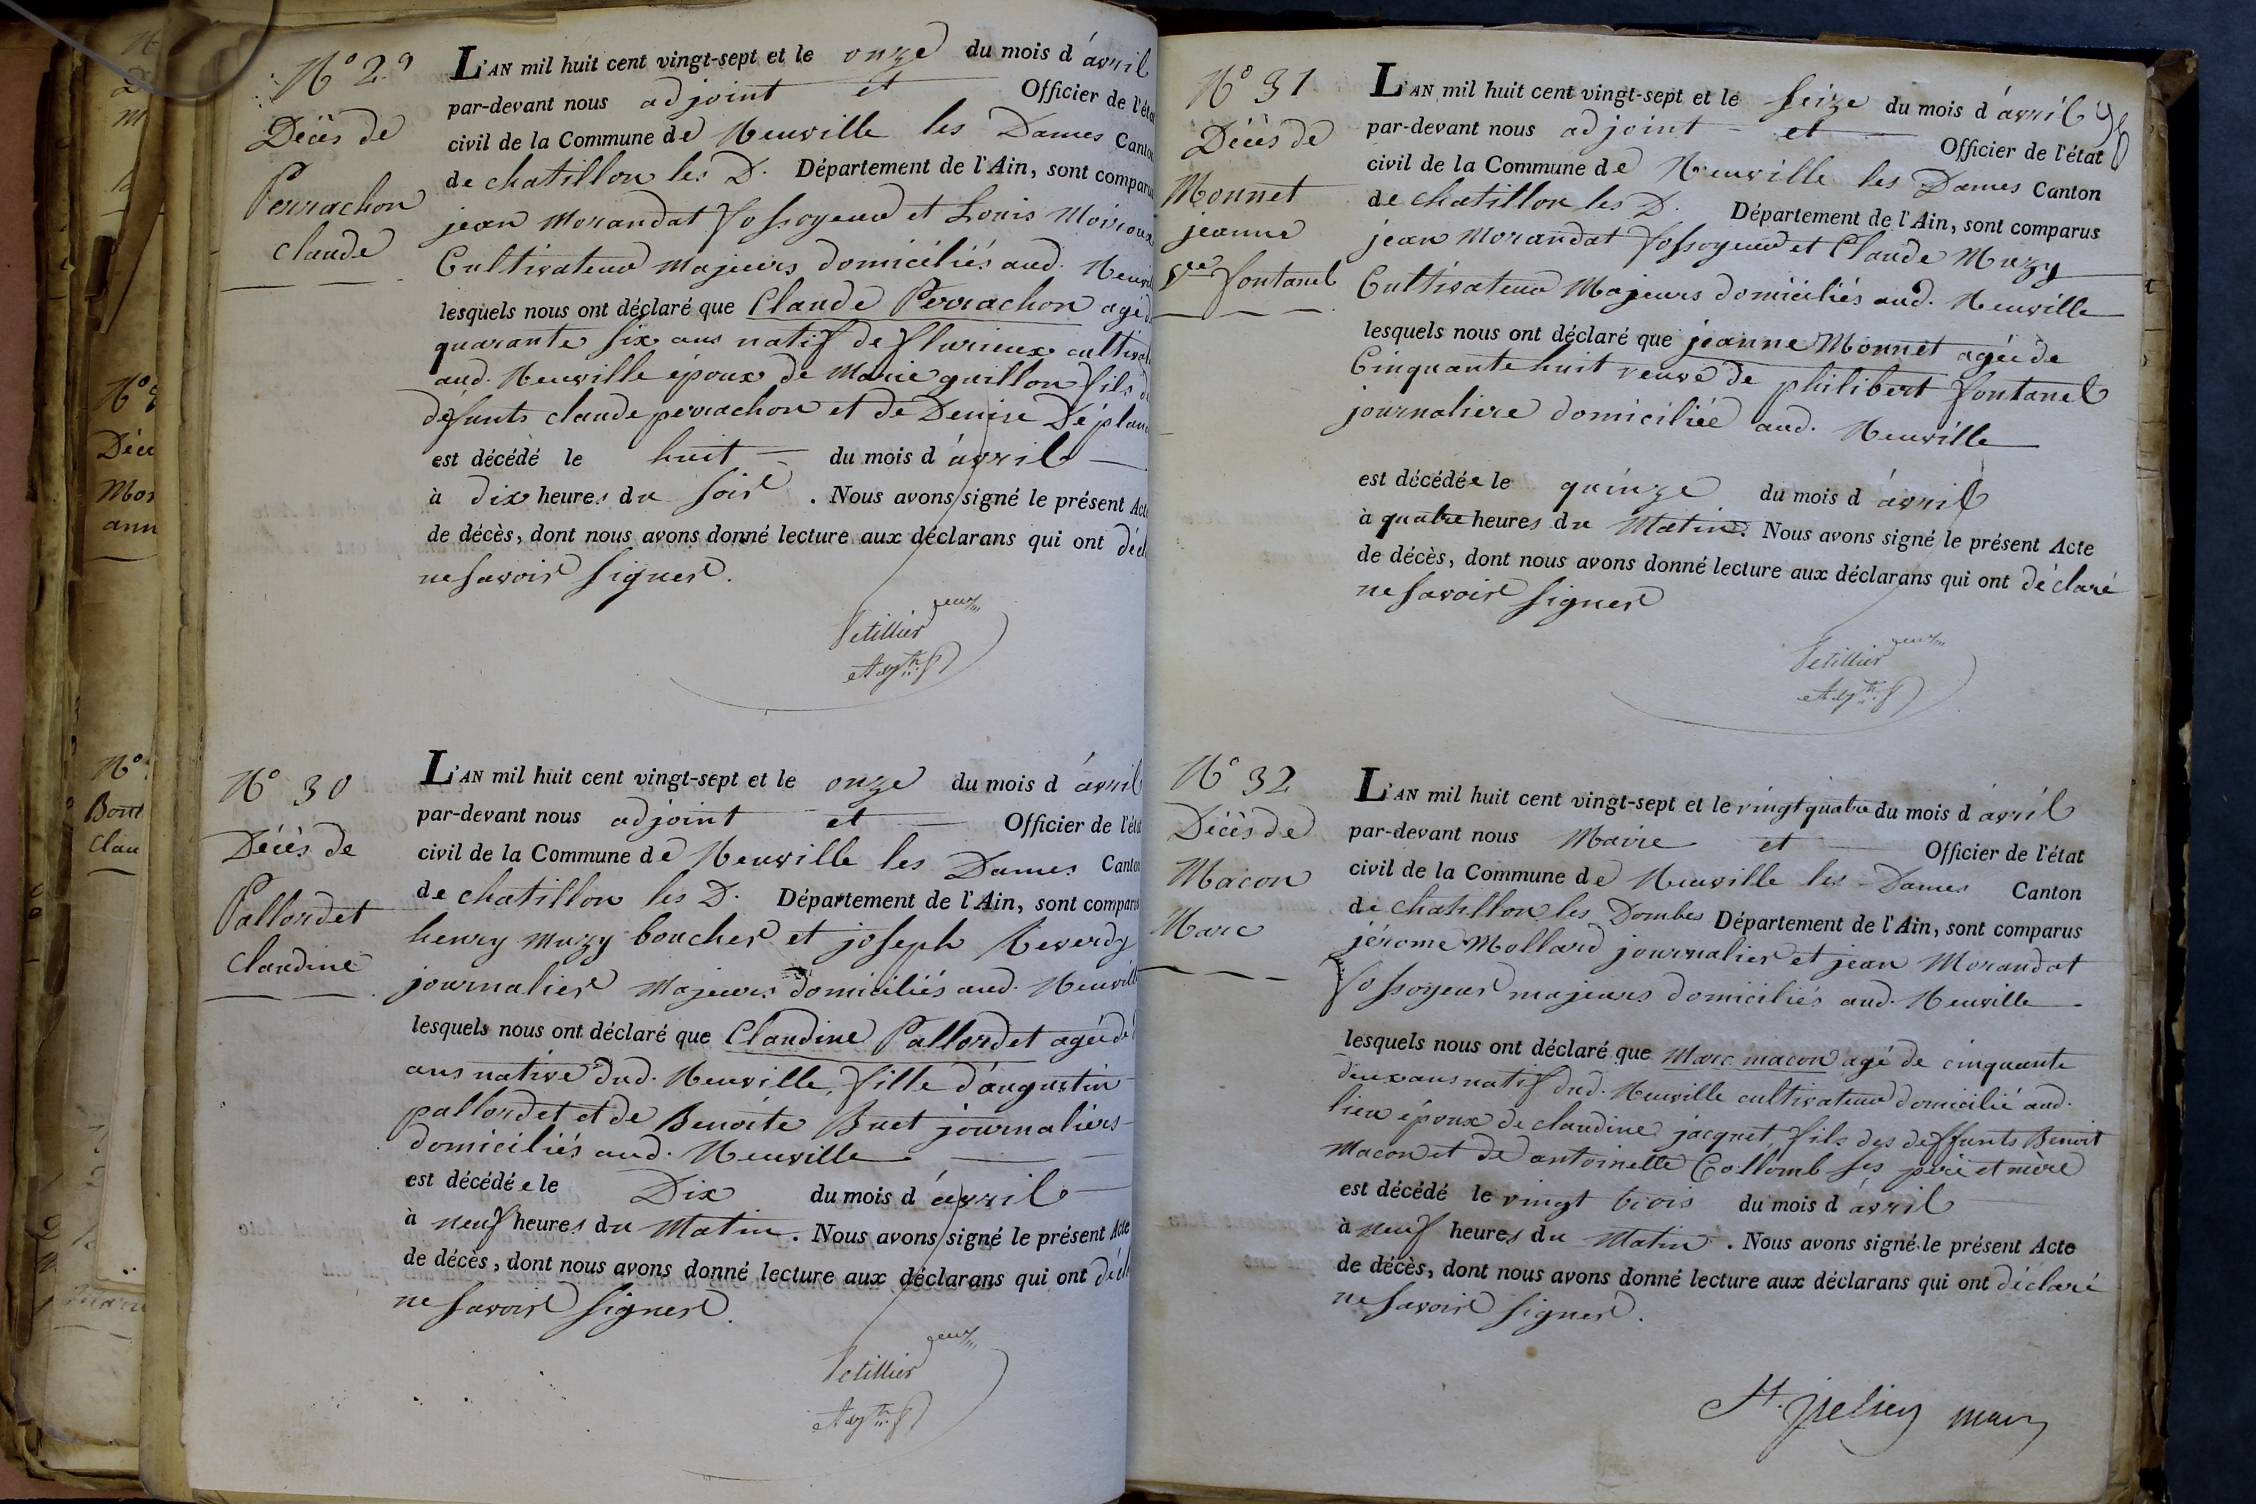 N° 29
Décès de
Perrachon
Claude
L'AN mil huit cent vingt-sept et le onze du mois d'avril
par-devant nous adjoint et Officier de l'éta
civil de la Commune de Neuville les Dames Canton
de chatillon les D. Département de l'Ain, sont comparus
jean Morandat fossoyeur et Louis Moiroux
Cultivateur majeurs domiciliés aud. Neuvil
lesquels nous ont déclaré que Claude Perrachon agé d
quarante six ans natif de flurieux cultivat
aud. Neuville époux de Marie guillon fils d
défunts claude perrachon et de Denise Déplan
est décédé le huit du mois d'avril
à dix heures du soir. Nous avons signé le présent Acte
de décès, dont nous avons donné lecture aux déclarans qui ont décl
ne savoir signer.
Petillier jeune
Adjt.
N° 30
Décès de
Pallordet
Claudine
L'AN mil huit cent vingt-sept et le onze du mois d'avril
par-devant nous adjoint et Officier de l'état
civil de la Commune de Neuville les Dames Canton
de chatillon les D. Département de l'Ain, sont comparus
henry muzy boucher et joseph Reverdy
journalier Majeurs domiciliés aud. Neuville
lesquels nous ont déclaré que Claudine Pallordet agée de
ans native dud. Neuville, fille d'augustin
pallordet et de Benoite Buet journaliers
domiciliés aud. Neuville
est décédée le Dix du mois d'avril
à neuf heures du Matin. Nous avons signé le présent Acte
de décès, dont nous avons donné lecture aux déclarans qui ont décl
ne savoir signer.
Petillier jeune
Adjt.
96
N° 31
Décès de
Monnet
jeanne
Ve fontanel
L'AN mil huit cent vingt-sept et le seize du mois d'avril
par-devant nous adjoint et Officier de l'état
civil de la Commune de Neuville les Dames Canton
de chatillon les D. Département de l'Ain, sont comparus
jean Morandat fossoyeur et Claude Muzy
Cultivateur Majeurs domiciliés aud. Neuville
lesquels nous ont déclaré que jeanne Monnet agée de
Cinquante huit veuve de philibert fontanel
journaliere domiciliée aud. Neuville
est décédée le quinze du mois d'avril
à quatre heures du Matin. Nous avons signé le présent Acte
de décès, dont nous avons donné lecture aux déclarans qui ont déclaré
ne savoir signer
Petillier jeune
Adjt.
N° 32
Décès de
Macon
Marc
L'AN mil huit cent vingt-sept et le vingt quatre du mois d'avril
par-devant nous Maire et Officier de l'état
civil de la Commune de Neuville les Dames Canton
de Chatillon les Dombes Département de l'Ain, sont comparus
jérome Mollard journalier et jean Morandat
fossoyeur majeurs domiciliés aud. Neuville
lesquels nous ont déclaré que Marc macon agé de cinquante
deux ans natif dud. Neuville cultivateur domicilié aud.
lieu époux de claudine jacquet, fils des deffunts Benoit
Macon et de antoinette Collomb ses père et mère
est décédé le vingt trois du mois d'avril
à neuf heures du Matin. Nous avons signé le présent Acte
de décès, dont nous avons donné lecture aux déclarans qui ont déclaré
ne savoir signer.